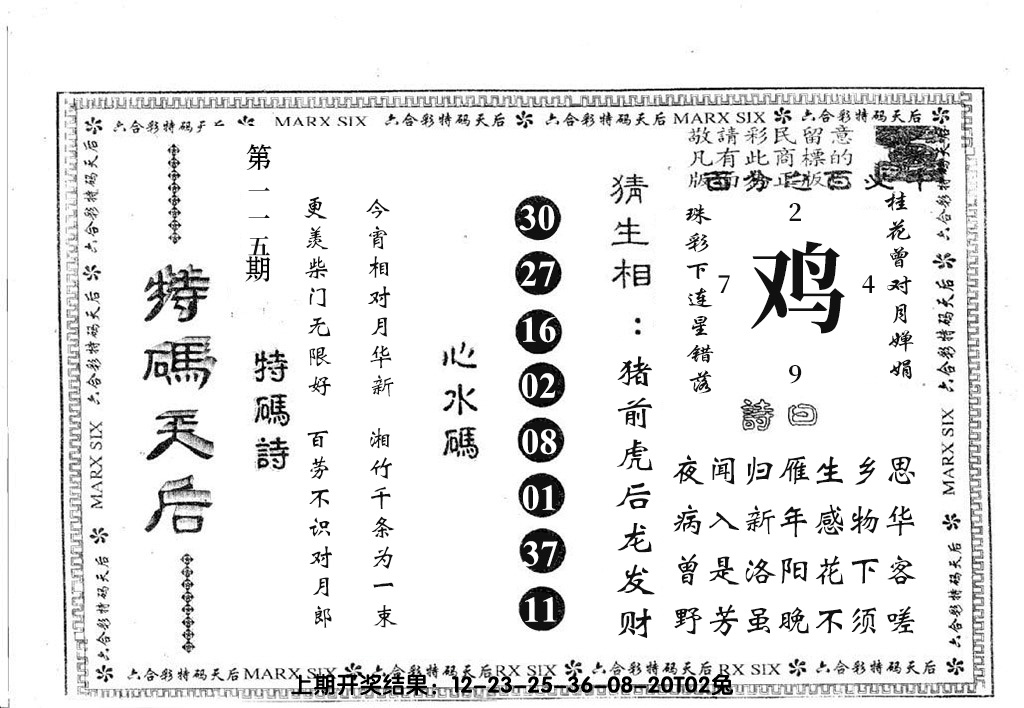 六合彩特码天后 MARX SIX 六合彩特码天后 六合彩特码天后 MARX SIX 六合彩特码天后
敬請彩民留意
凡有此商標的
版面為正版
第一一五期
特碼天后
特碼詩
更羡柴门无限好 百劳不识对月郎
今宵相对月华新 湘竹千条为一束
心水碼
30
27
16
02
08
01
37
11
猜生相：猪前虎后龙发财
珠彩下连星错落
桂花曾对月婵娟
2
7 鸡 4
9
詩曰
夜闻归雁生乡思
病入新年感物华
曾是洛阳花下客
野芳虽晚不须嗟
六合彩特码天后 MARX SIX 六合彩特码天后
六合彩特码天后 MARX SIX 六合彩特码天后
六合彩特码天后 MARX SIX 六合彩特码天后RX SIX 六合彩特码天后 RX SIX 六合彩特码天后
上期开奖结果：12-23-25-36-08-20T02兔